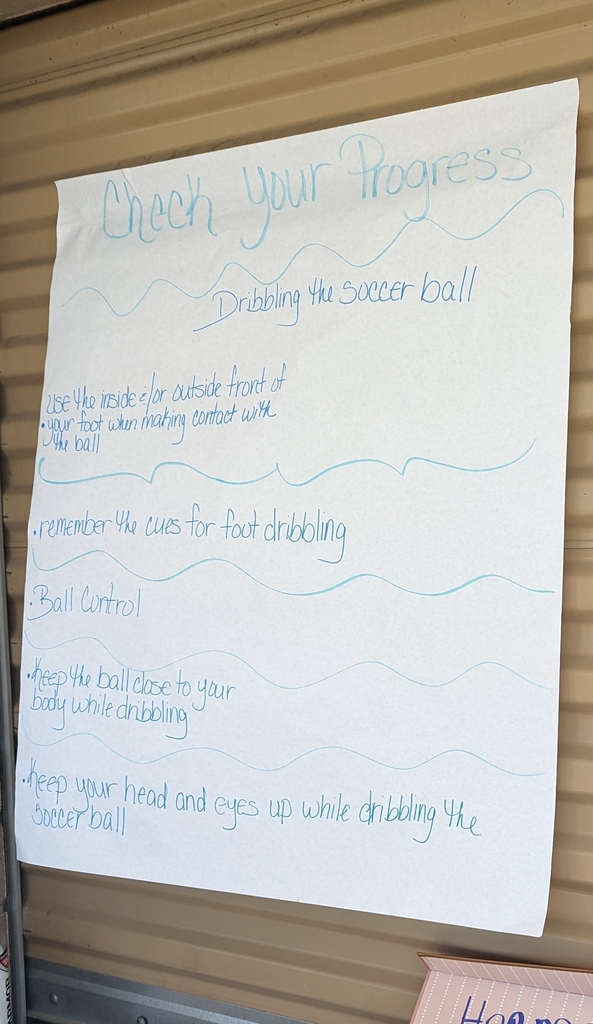 Check Your Progress
Dribbling the soccer ball
use the inside &/or outside front of
• your foot when making contact with
the ball
• remember the cues for foot dribbling
• Ball Control
• Keep the ball close to your
body while dribbling
• Keep your head and eyes up while dribbling the
soccer ball